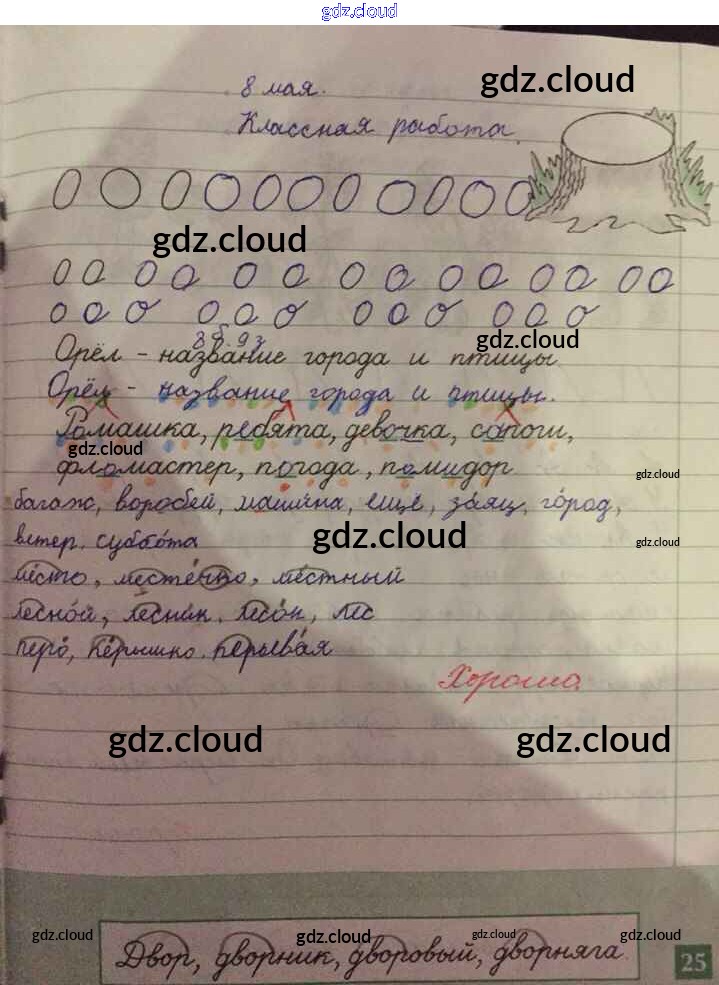 gdz.cloud
gdz.cloud
8 мая.
Классная работа.
gdz.cloud
gdz.cloud
Орёл - название города и птицы
Орёл - название города и птицы.
Ромашка, ребята, девочка, сапоги,
gdz.cloud
фломастер, погода, помидор
gdz.cloud
багаж, воробей, машина, ещё, заяц, город,
ветер, суббота
gdz.cloud
gdz.cloud
место, местечко, местный
лесной, лесник, лесок, лес
перо, пёрышко, перьевая
Хорошо.
gdz.cloud
gdz.cloud
gdz.cloud
gdz.cloud
gdz.cloud
gdz.cloud
Двор, дворник, дворовый, дворняга.
25